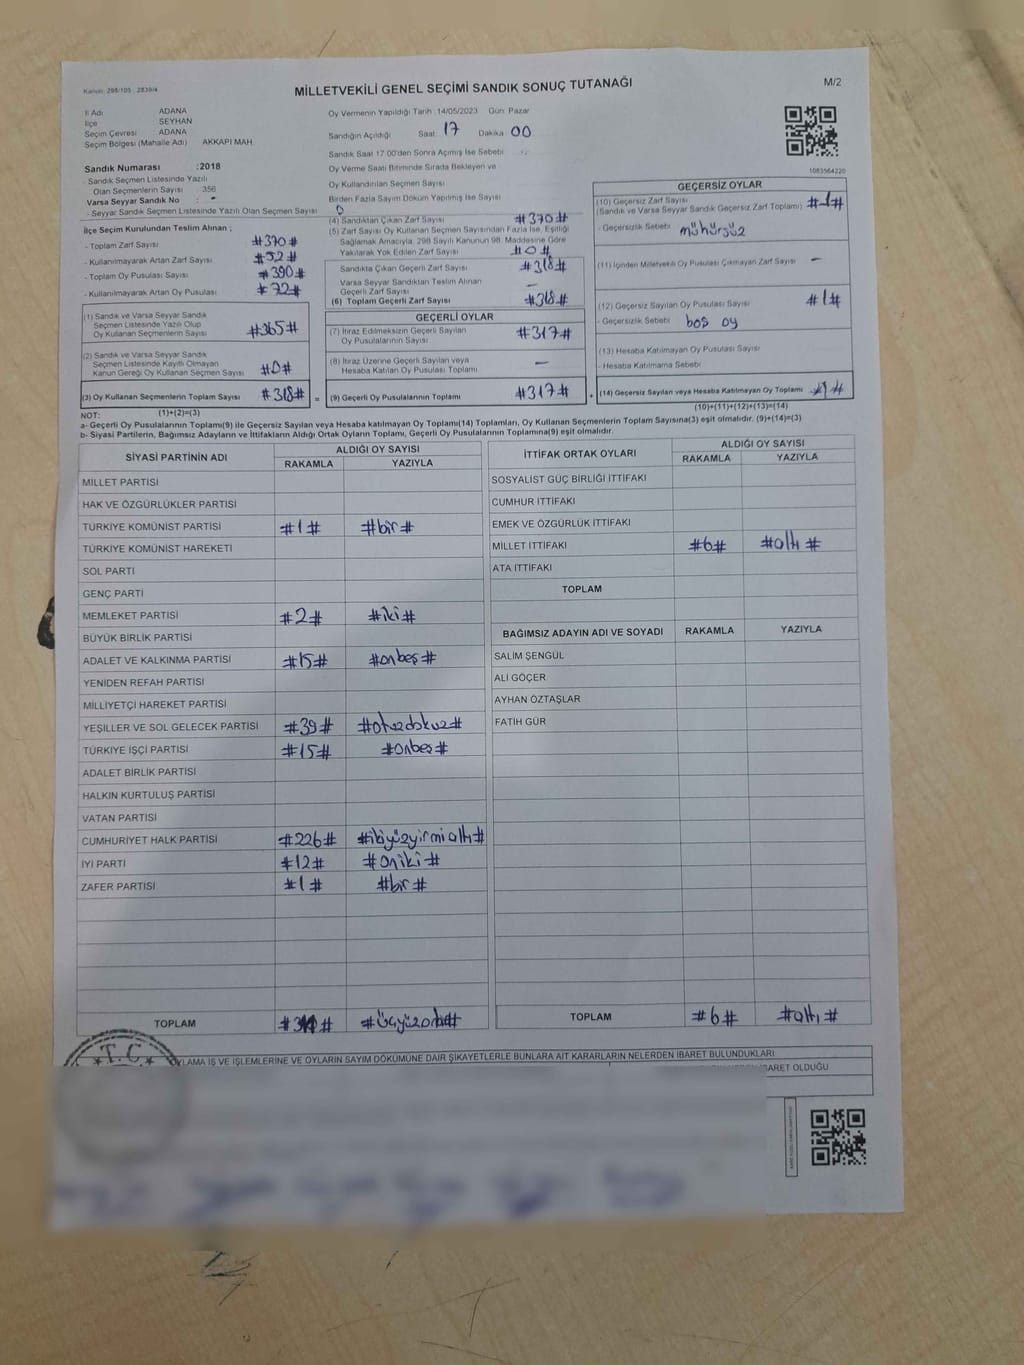 Kanun: 298/105 , 2839/4
MİLLETVEKİLİ GENEL SEÇİMİ SANDIK SONUÇ TUTANAĞI
M/2
İl Adı ADANA
İlçe SEYHAN
Seçim Çevresi : ADANA
Seçim Bölgesi (Mahalle Adı) AKKAPI MAH.
Sandık Numarası :2018
- Sandık Seçmen Listesinde Yazılı
Olan Seçmenlerin Sayısı : 356
Varsa Seyyar Sandık No : -
- Seyyar Sandık Seçmen Listesinde Yazılı Olan Seçmen Sayısı
İlçe Seçim Kurulundan Teslim Alınan ;
- Toplam Zarf Sayısı #370#
- Kullanılmayarak Artan Zarf Sayısı #52#
- Toplam Oy Pusulası Sayısı #390#
- Kullanılmayarak Artan Oy Pusulası #72#
(1) Sandık ve Varsa Seyyar Sandık
Seçmen Listesinde Yazılı Olup
Oy Kullanan Seçmenlerin Sayısı #365#
(2) Sandık ve Varsa Seyyar Sandık
Seçmen Listesinde Kayıtlı Olmayan
Kanun Gereği Oy Kullanan Seçmen Sayısı #0#
(3) Oy Kullanan Seçmenlerin Toplam Sayısı #318# =
Oy Vermenin Yapıldığı Tarih :14/05/2023 Gün: Pazar
Sandığın Açıldığı Saat: 17 Dakika 00
Sandık Saat 17.00'den Sonra Açılmış İse Sebebi
Oy Verme Saati Bitiminde Sırada Bekleyen ve
Oy Kullandırılan Seçmen Sayısı
Birden Fazla Sayım Döküm Yapılmış İse Sayısı
0
(4) Sandıktan Çıkan Zarf Sayısı #370#
(5) Zarf Sayısı Oy Kullanan Seçmen Sayısından Fazla İse, Eşitliği
Sağlamak Amacıyla, 298 Sayılı Kanunun 98. Maddesine Göre
Yakılarak Yok Edilen Zarf Sayısı #0#
Sandıkta Çıkan Geçerli Zarf Sayısı #318#
Varsa Seyyar Sandıktan Teslim Alınan
Geçerli Zarf Sayısı -
(6) Toplam Geçerli Zarf Sayısı #318#
GEÇERLİ OYLAR
(7) İtiraz Edilmeksizin Geçerli Sayılan
Oy Pusulalarının Sayısı #317#
(8) İtiraz Üzerine Geçerli Sayılan veya
Hesaba Katılan Oy Pusulası Toplamı -
(9) Geçerli Oy Pusulalarının Toplamı #317# +
1083564220
GEÇERSİZ OYLAR
(10) Geçersiz Zarf Sayısı
(Sandık ve Varsa Seyyar Sandık Geçersiz Zarf Toplamı) #1#
- Geçersizlik Sebebi: mühürsüz
(11) İçinden Milletvekili Oy Pusulası Çıkmayan Zarf Sayısı -
(12) Geçersiz Sayılan Oy Pusulası Sayısı #1#
- Geçersizlik Sebebi boş oy
(13) Hesaba Katılmayan Oy Pusulası Sayısı
- Hesaba Katılmama Sebebi
(14) Geçersiz Sayılan veya Hesaba Katılmayan Oy Toplamı #1#
NOT: (1)+(2)=(3)
(10)+(11)+(12)+(13)=(14)
a- Geçerli Oy Pusulalarının Toplamı(9) ile Geçersiz Sayılan veya Hesaba katılmayan Oy Toplamı(14) Toplamları, Oy Kullanan Seçmenlerin Toplam Sayısına(3) eşit olmalıdır. (9)+(14)=(3)
b- Siyasi Partilerin, Bağımsız Adayların ve İttifakların Aldığı Ortak Oyların Toplamı, Geçerli Oy Pusulalarının Toplamına(9) eşit olmalıdır.
SİYASİ PARTİNİN ADI ALDIĞI OY SAYISI
RAKAMLA YAZIYLA
MİLLET PARTİSİ
HAK VE ÖZGÜRLÜKLER PARTİSİ
TÜRKİYE KOMÜNİST PARTİSİ #1# #bir#
TÜRKİYE KOMÜNİST HAREKETİ
SOL PARTİ
GENÇ PARTİ
MEMLEKET PARTİSİ #2# #iki#
BÜYÜK BİRLİK PARTİSİ
ADALET VE KALKINMA PARTİSİ #15# #onbeş#
YENİDEN REFAH PARTİSİ
MİLLİYETÇİ HAREKET PARTİSİ
YEŞİLLER VE SOL GELECEK PARTİSİ #39# #otuzdokuz#
TÜRKİYE İŞÇİ PARTİSİ #15# #onbeş#
ADALET BİRLİK PARTİSİ
HALKIN KURTULUŞ PARTİSİ
VATAN PARTİSİ
CUMHURİYET HALK PARTİSİ #226# #ikiyüzyirmialtı#
İYİ PARTİ #12# #oniki#
ZAFER PARTİSİ #1# #bir#
TOPLAM
İTTİFAK ORTAK OYLARI ALDIĞI OY SAYISI
RAKAMLA YAZIYLA
SOSYALİST GÜÇ BİRLİĞİ İTTİFAKI
CUMHUR İTTİFAKI
EMEK VE ÖZGÜRLÜK İTTİFAKI
MİLLET İTTİFAKI #6# #altı#
ATA İTTİFAKI
TOPLAM
BAĞIMSIZ ADAYIN ADI VE SOYADI RAKAMLA YAZIYLA
SALİM ŞENGÜL
ALİ GÖÇER
AYHAN ÖZTAŞLAR
FATİH GÜR
TOPLAM #6# #altı#
T.C.
LAMA İŞ VE İŞLEMLERİNE VE OYLARIN SAYIM DÖKÜMÜNE DAİR ŞİKAYETLERLE BUNLARA AİT KARARLARIN NELERDEN İBARET BULUNDUKLARI
BARET OLDUĞU